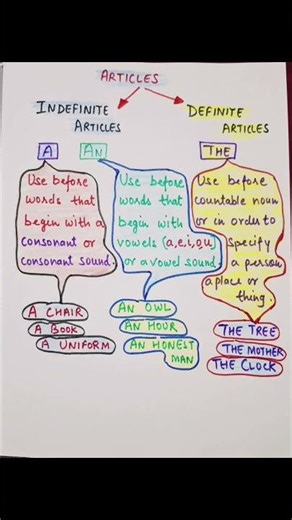 ARTICLES
INDEFINITE
ARTICLES
DEFINITE
ARTICLES
A
AN
THE
Use before
words that
begin with a
consonant or
consonant sound.
Use before
words that
begin with
vowels (a,e,i,o,u)
or a vowel sound.
Use before
countable noun
or in order to
Specify
a person,
a place or
thing.
A CHAIR
A BOOK
A UNIFORM
AN OWL
AN HOUR
AN HONEST
MAN
THE TREE
THE MOTHER
THE CLOCK